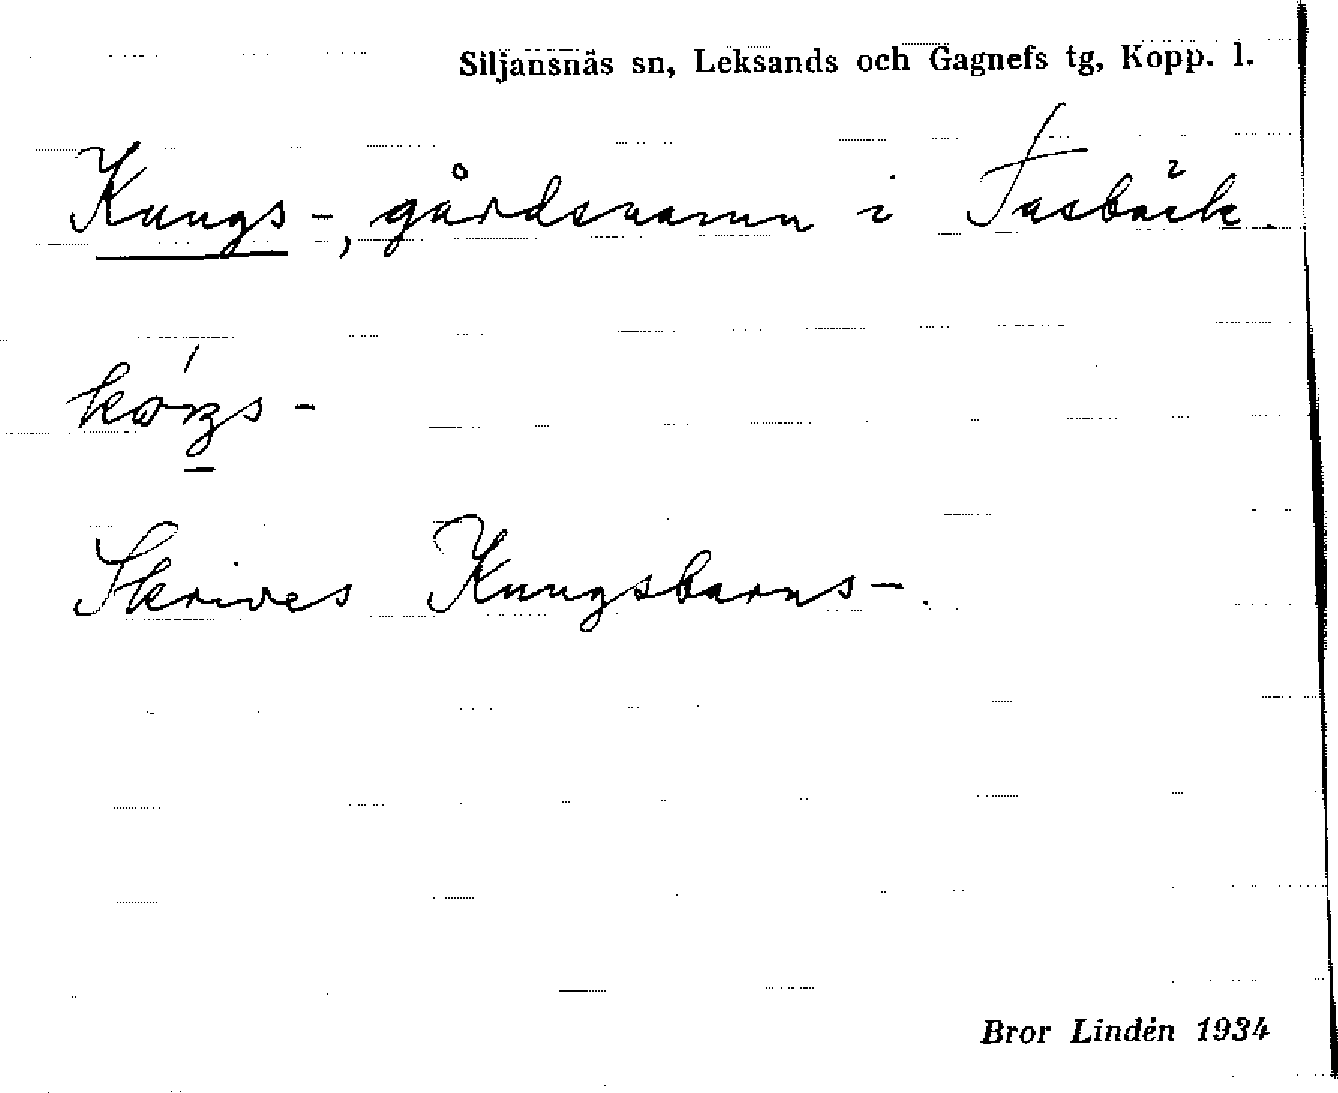 Siljansnäs sn, Leksands och Gagnefs tg, Kopp. l.
Kungs-, gårdsnamn i Fasbäck.
Skrives Kungsbarns-.
Bror Lindén 1934